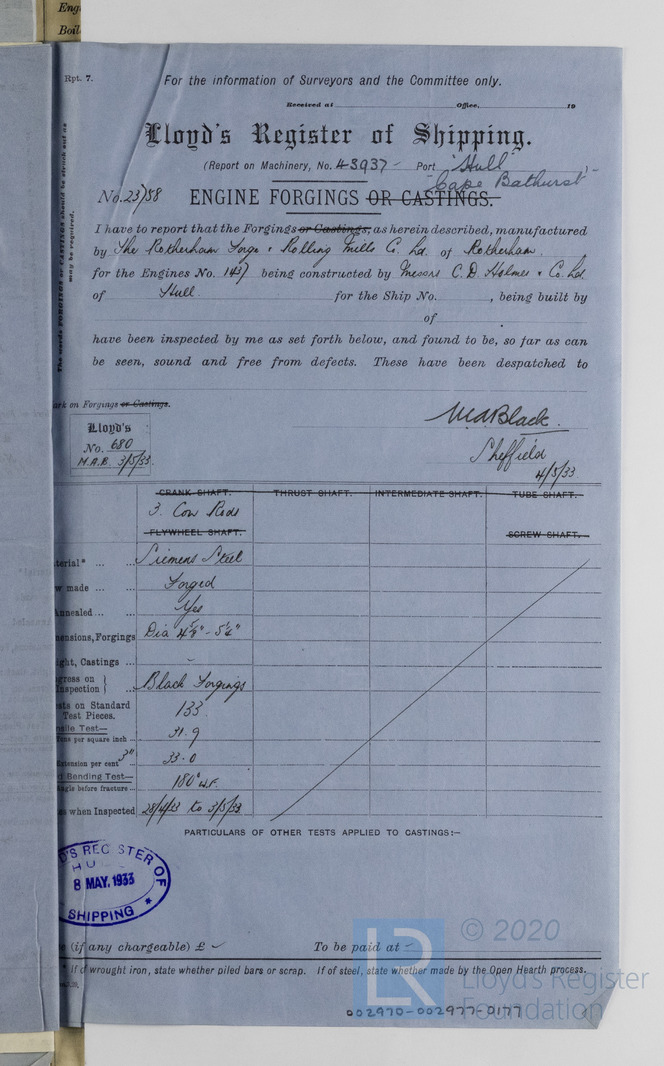 Eng
Boil
Rpt. 7.
For the information of Surveyors and the Committee only.
Received at Office, 19
Lloyd's Register of Shipping.
(Report on Machinery, No. 43937 - Port "Hull"
"Cape Bathurst"-
No. 23758
ENGINE FORGINGS OR CASTINGS.
The words FORGINGS or CASTINGS should be struck out as
may be required.
I have to report that the Forgings or Castings, as herein described, manufactured
by The Rotherham Forge & Rolling Mills Co. Ld. of Rotherham.
for the Engines No. 1437 being constructed by Messrs C. D. Holmes & Co. Ld.
of Hull. for the Ship No. , being built by
of
have been inspected by me as set forth below, and found to be, so far as can
be seen, sound and free from defects. These have been despatched to
ark on Forgings or Castings.
Lloyd's
No. 680
M.A.B. 3/5/33
M A Black.
Sheffield
4/5/33
CRANK SHAFT. THRUST SHAFT. INTERMEDIATE SHAFT. TUBE SHAFT.
3. Con Rods
FLYWHEEL SHAFT. SCREW SHAFT.
terial* ... ... Siemens Steel
w made ... ... Forged
nnealed ... ... Yes
ensions, Forgings Dia 4 5/8" - 5 1/4"
ight, Castings ... -
gress on
Inspection } ... Black Forgings
sts on Standard
Test Pieces. 133
nsile Test—
Tons per square inch ... 31.9
Extension per cent 3" ... 33.0
d Bending Test—
Angle before fracture ... 180° U.F.
s when Inspected 28/4/33 to 3/5/33
PARTICULARS OF OTHER TESTS APPLIED TO CASTINGS:—
D'S REGISTER OF
HULL
8 MAY. 1933
SHIPPING *
e (if any chargeable) £ To be paid at -
* If of wrought iron, state whether piled bars or scrap. If of steel, state whether made by the Open Hearth process.
© 2020
LR
Lloyd's Register
Foundation
002970-002977-0177